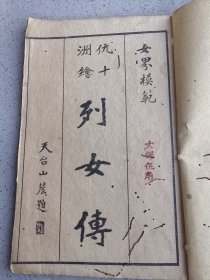 女界模範
仇十洲繪
列女傳
天台山農題
大洋伍角